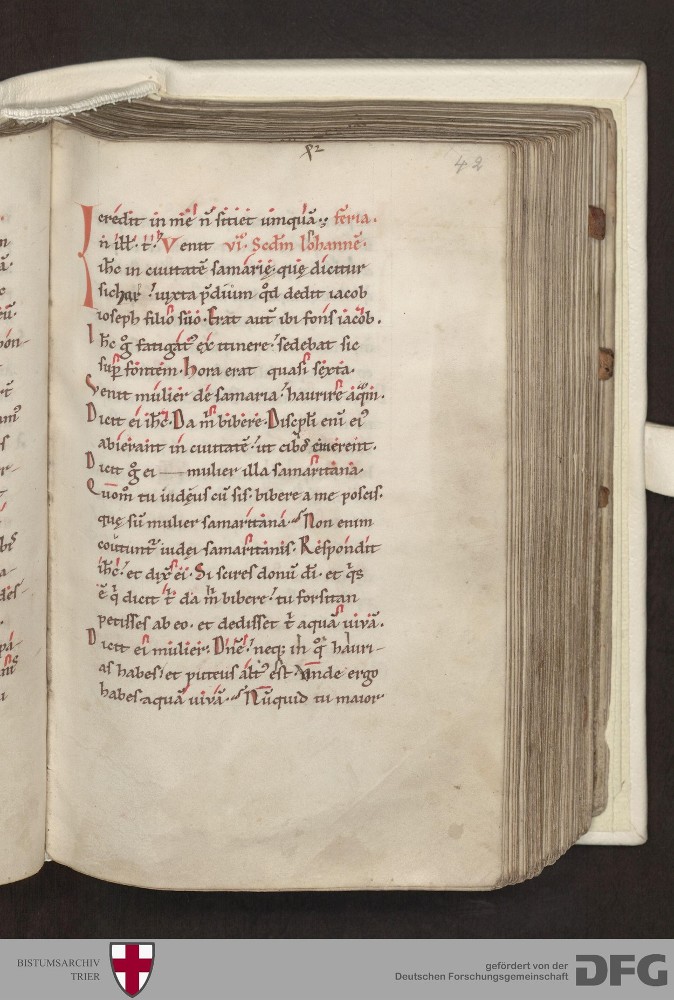 42
credit in me n̄ sitiet umquā. feria.
in ill. t̄. Venit vi. Scdm Iohannē.
ihc in ciuitatē samarię. quę dicitur
sichar. iuxta p̄dium qd̄ dedit iacob
ioseph filio suo. Erat aut̄ ibi fons iacob.
Ihc g̊ fatigat᷒ ex itinere. sedebat sic
sup̄ fontem. hora erat quasi sexta.
Venit mulier de samaria. haurire aquā.
Dicit ei ihc. Da m̄ bibere. Discipli eni ei᷒
abierant in ciuitatē. ut cibos emerent.
Dicit g̊ ei — mulier illa samaritana.
Quom̊ tu iudęus cū sis. bibere a me poscis.
quę sū mulier samaritana. Non enim
coutunt᷑ iudęi samaritanis. Respondit
ihc. et dix̄ ei. Si scires donū dī. et q̄s
ē q̄ dicit t̄. da m̄ bibere. tu forsitan
petisses ab eo. et dedisset t̄ aquā uiuā.
Dicit ei mulier. Dn̄e. neq; in q̊ hauri-
as habes. et puteus alt᷒ est. Unde ergo
habes aquā uiuā. Nūquid tu maior
BISTUMSARCHIV
TRIER
gefördert von der
Deutschen Forschungsgemeinschaft
DFG